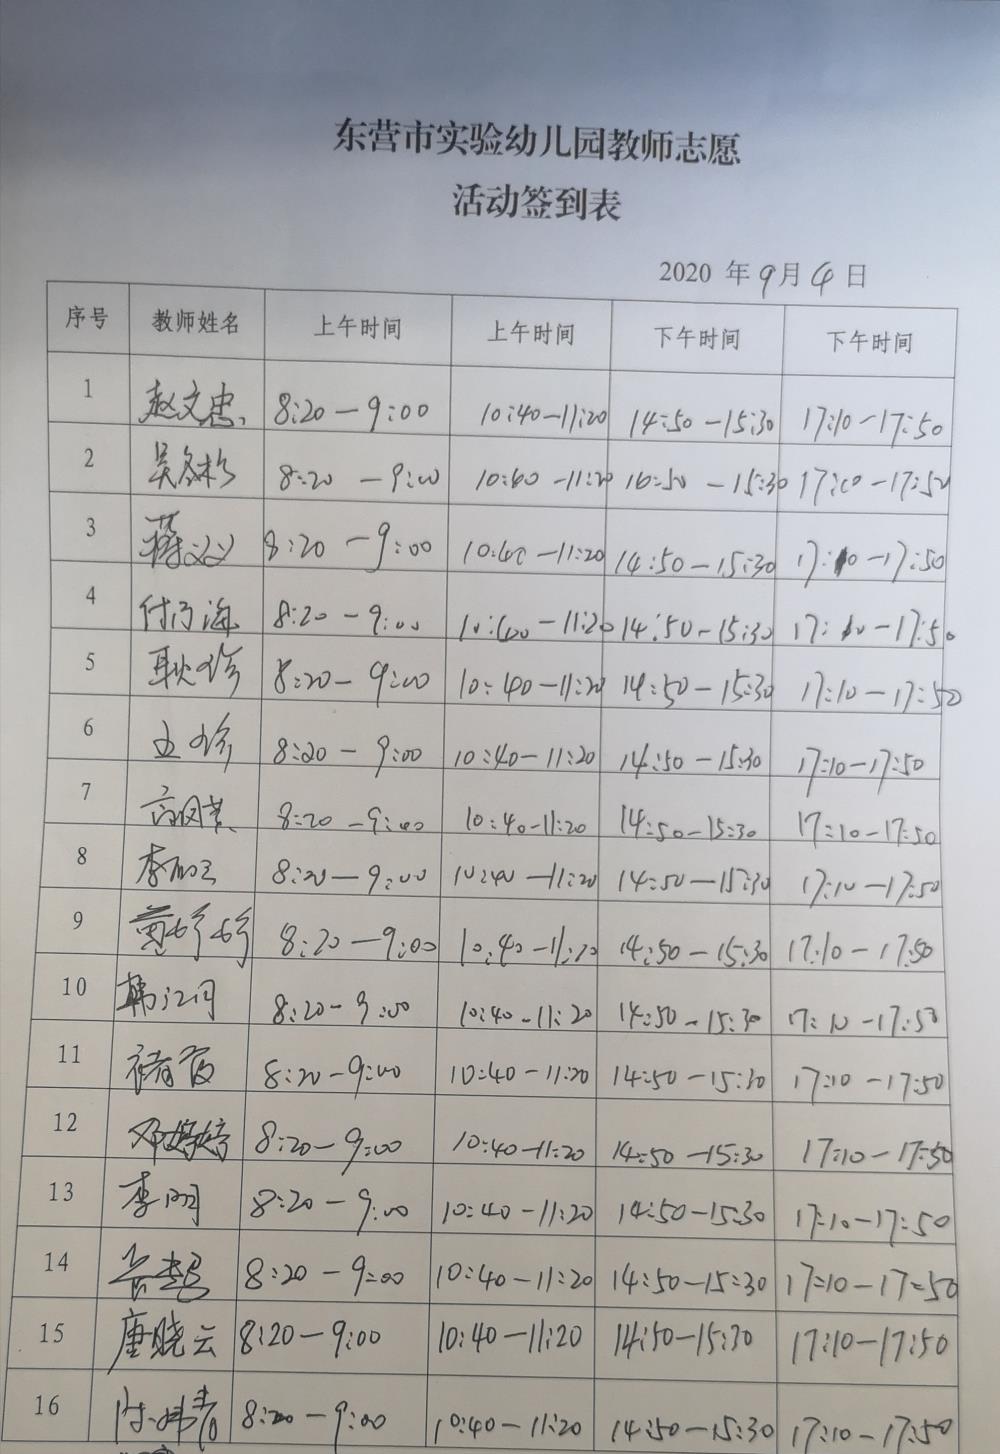 东营市实验幼儿园教师志愿
活动签到表
2020 年 9月 4 日
序号 教师姓名 上午时间 上午时间 下午时间 下午时间
1 赵文忠 8:20-9:00 10:40-11:20 14:50-15:30 17:10-17:50
2 吴冬梅 8:20-9:00 10:40-11:20 14:50-15:30 17:10-17:50
3 蒋义义 8:20-9:00 10:40-11:20 14:50-15:30 17:10-17:50
4 付海 8:20-9:00 10:40-11:20 14:50-15:30 17:10-17:50
5 耿珍 8:20-9:00 10:40-11:20 14:50-15:30 17:10-17:50
6 珍 8:20-9:00 10:40-11:20 14:50-15:30 17:10-17:50
7 高凤 8:20-9:00 10:40-11:20 14:50-15:30 17:10-17:50
8 李 8:20-9:00 10:40-11:20 14:50-15:30 17:10-17:50
9 黄 8:20-9:00 10:40-11:20 14:50-15:30 17:10-17:50
10 韩江 8:20-9:00 10:40-11:20 14:50-15:30 17:10-17:50
11 褚 8:20-9:00 10:40-11:20 14:50-15:30 17:10-17:50
12 邓婷婷 8:20-9:00 10:40-11:20 14:50-15:30 17:10-17:50
13 李明 8:20-9:00 10:40-11:20 14:50-15:30 17:10-17:50
14 8:20-9:00 10:40-11:20 14:50-15:30 17:10-17:50
15 唐晓云 8:20-9:00 10:40-11:20 14:50-15:30 17:10-17:50
16 8:20-9:00 10:40-11:20 14:50-15:30 17:10-17:50